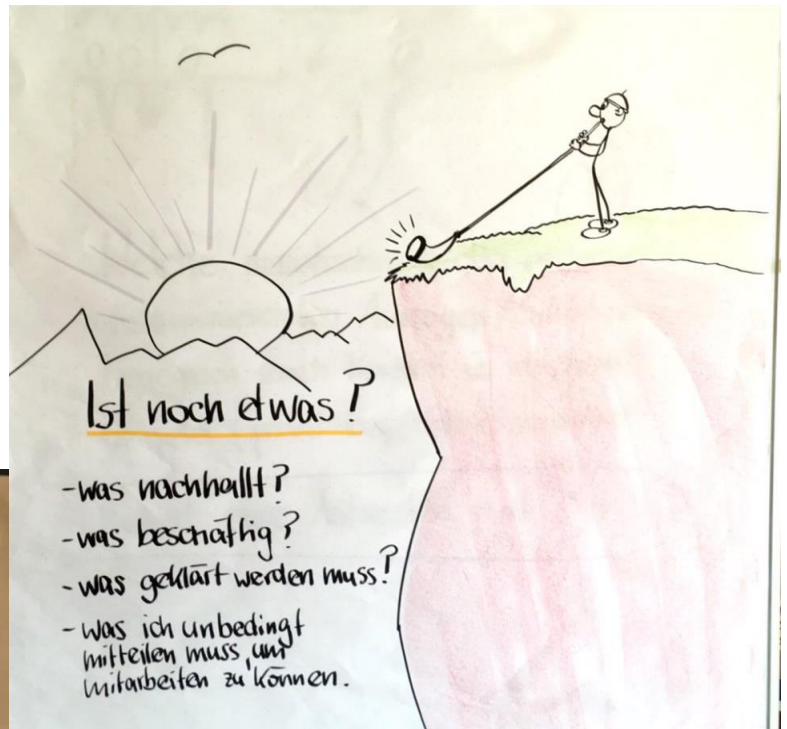 Ist noch etwas?
- was nachhallt?
- was beschäftig?
- was geklärt werden muss?
- was ich unbedingt
mitteilen muss, um
mitarbeiten zu können.